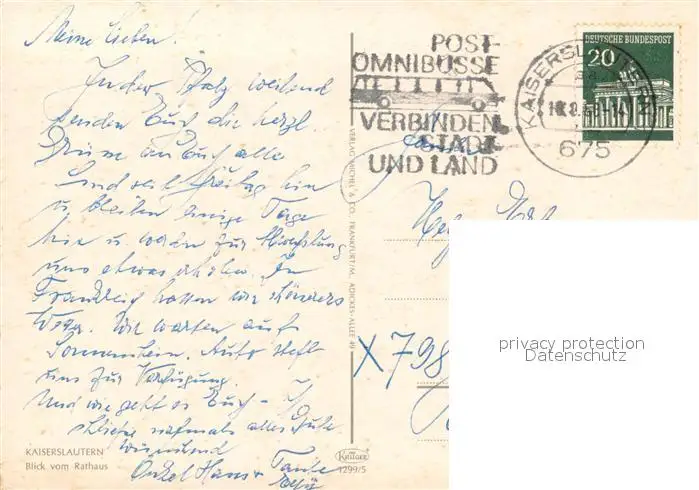 Meine Lieben!
In der Pfalz weilend
senden Euch die herzl.
Grüsse an Euch alle
Sind seit Freitag hier
u. bleiben einige Tage
hier u.
uns etwas In
Frankreich hatten wir schönes
Wetter. Wir warten auf
Sonnenschein. Auto steht
uns zur Verfügung.
Und wie geht es Euch –
nochmals alles Gute
wünschend
Onkel Hans + Tante
KAISERSLAUTERN
Blick vom Rathaus
VERLAG MICHEL & CO. FRANKFURT/M. ADICKES-ALLEE 49
Krüger
1299/5
POST-
OMNIBUSSE
VERBINDEN
STADT
UND LAND
KAISERSLAUTERN
675
DEUTSCHE BUNDESPOST
20
X 798
privacy protection
Datenschutz